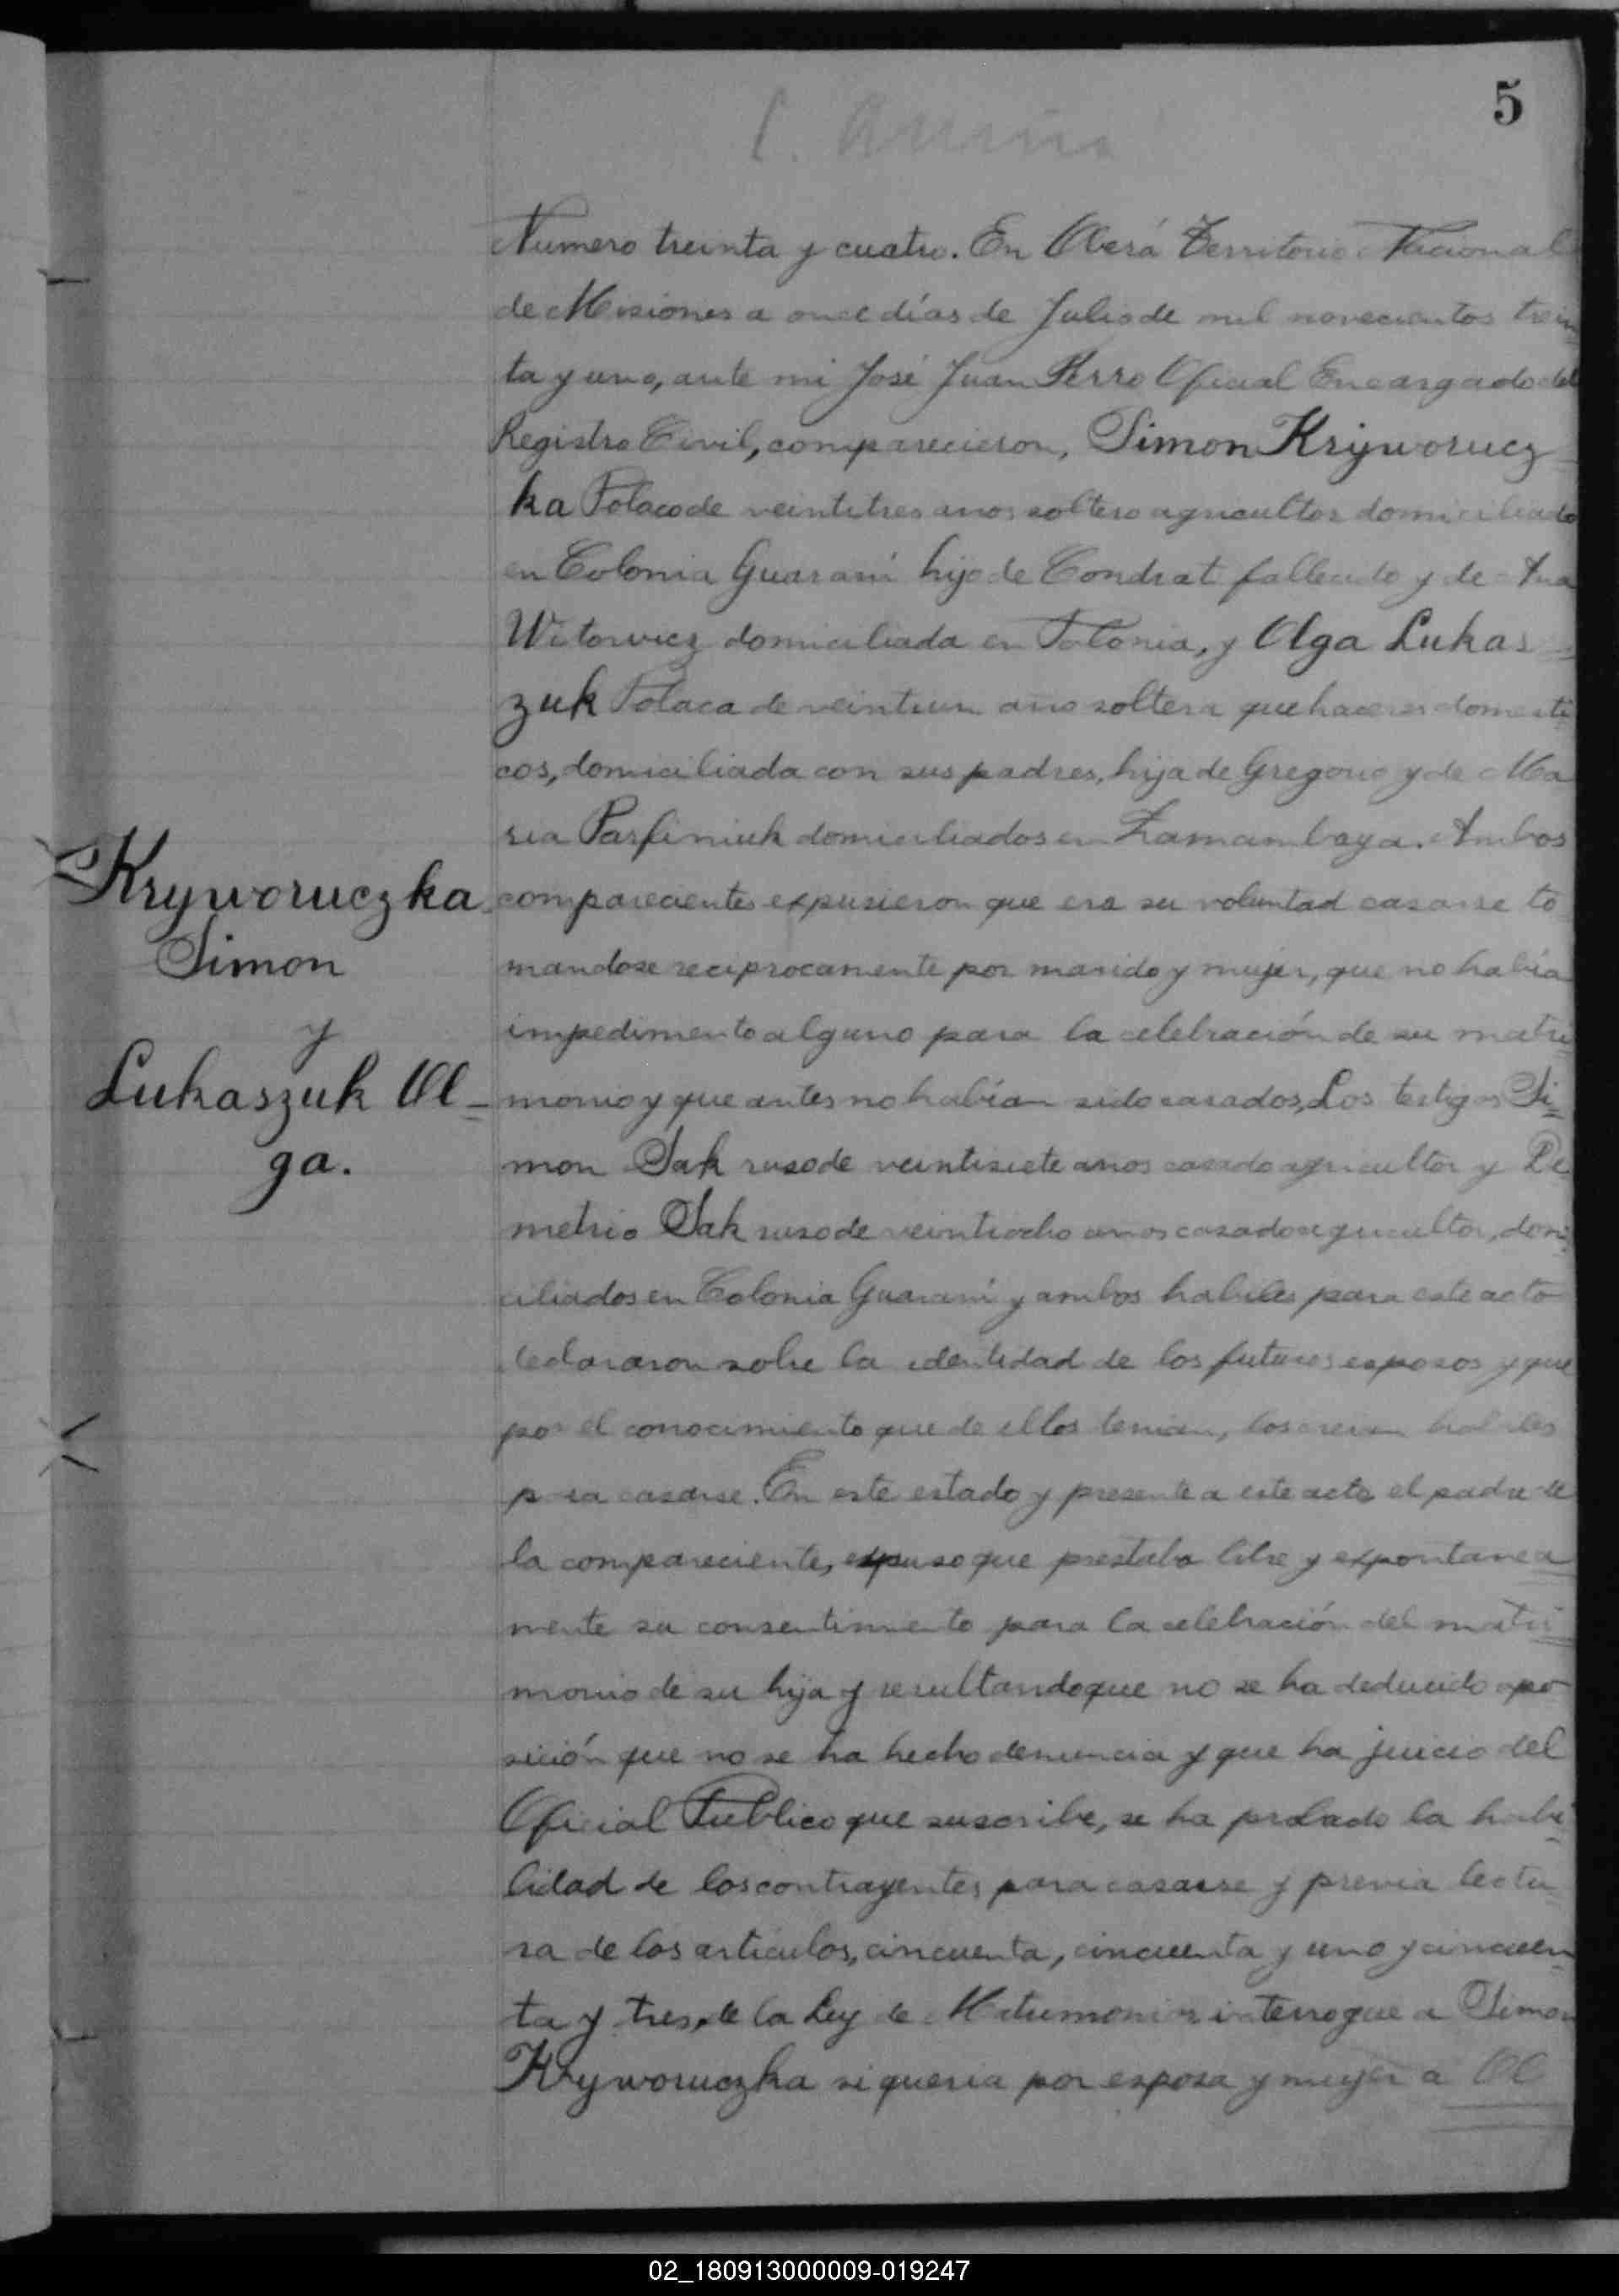 5
Numero treinta y cuatro. En Oberá Territorio Nacional
de Misiones a once días de Julio de mil novecientos trein
ta y uno, ante mi José Juan Perro Oficial Encargado del
Registro Civil, comparecieron, Simon Kryworucz
ka Polaco de veintitres anos soltero agricultor domiciliado
en Colonia Guaraní hijo de Condrat fallecido y de Ana
Witorwicz domiciliada en Polonia, y Olga Lukas
zuk Polaca de veintiun ano soltera quehaceres domesti
cos, domiciliada con sus padres, hija de Gregorio y de Ma
ria Parfiniuk domiciliados en Zamambaya. Ambos
Kryworuczka
Simon
y
Lukaszuk Ol=
ga.
comparecientes expusieron que era su voluntad casarse to
mandose reciprocamente por marido y mujer, que no habia
impedimento alguno para la celebración de su matri
monio y que antes no habían sido casados, Los testigos Si=
mon Sak ruso de veintisiete anos casado agricultor y De
metrio Sak ruso de veintiocho anos casado agricultor, domi
ciliados en Colonia Guaraní y ambos habiles para este acto
declararon sobre la identidad de los futuros esposos y que
por el conocimiento que de ellos tenian, los creian habiles
para casarse. En este estado y presente a este acto el padre de
la compareciente, expuso que prestaba libre y expontanea
mente su consentimiento para la celebración del matri
monio de su hija y resultando que no se ha deducido opo
sición que no se ha hecho denuncia y que ha juicio del
Oficial Publico que suscribe, se ha probado la habi
lidad de los contrayentes para casarse y previa lectu
ra de los articulos, cincuenta, cincuenta y uno y cincuen
ta y tres, de la Ley de Matrimonio interrogue a Simon
Kryworuczka si queria por esposa y mujer a Ol
02_180913000009-019247